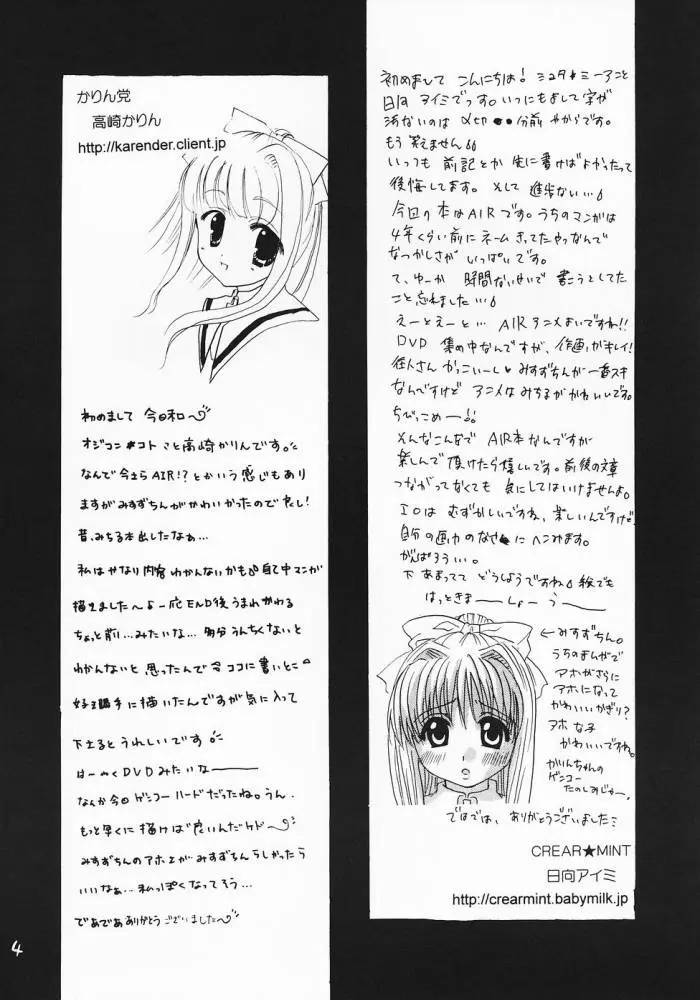 かりん党
高崎かりん
http://karender.client.jp
初めまして 今日和
オジコン＊コトこと高崎かりんです。
なんで今さらAIR!?とかいう感じもあり
ますがみすずちんがかわいかったので良し!
昔、みちる本出したなぁ…
私はかなり内容わかんないかも 自己中マンガ
描きました〜 一応END後うまれかわる
ちょっと前…みたいな… 多分うんちくないと
わかんないと思ったんで今ココに書いとこ
好き勝手に描いたんですが気に入って
下さるとうれしいです。
はーやくDVDみたいなー
なんか今回ゲンコーハードだったね。うん.
もっと早くに描けば良いんだケド〜
みすずちんのアホさがみすずちんらしかったら
いいなぁ…私っぽくなってそう…
であであありがとうございました〜
初めまして こんにちは! ミュタ★ミーアこと
日向アイミでっす。いつにもまして字が
汚ないのは〆切●●分前だからです。
もう笑えません
いっつも 前記とか 先に書けばよかったって
後悔してます。そして 進歩ない…
今回の本はAIRです。うちのマンガは
4年くらい前にネームきってたやつなんで
なつかしさが いっぱいです。
て、ゆーか 時間ないせいで 書こうとしてた
こと忘れました…
えーとえーと… AIRアニメよいですね!!
DVD 集め中なんですが、作画がキレイ!
往人さん かっこいーし♥みすずちんが一番スキ
なんですけど アニメはみちるがかわいいです。
ちびっこめー!!
そんなこんなで AIR本なんですが
楽しんで頂けたら嬉しいです。前後の文章
つながってなくても 気にしてはいけませんよ。
エロは むずかしいですね、楽しいんですけど
自分の画力のなさ に ヘこみます。
がんばろうぃ。
下 あまってて どうしようですね 絵でも
はっときまーしょーうー
←みすずちん。
うちのまんがで
アホがさらに
アホになって
かわいいかぎり?
アホな子
かわいいですね。
かりんちゃんの
ゲンコー
たのしみじゃー。
ではでは、ありがとうございました
CREAR★MINT
日向アイミ
http://crearmint.babymilk.jp
4